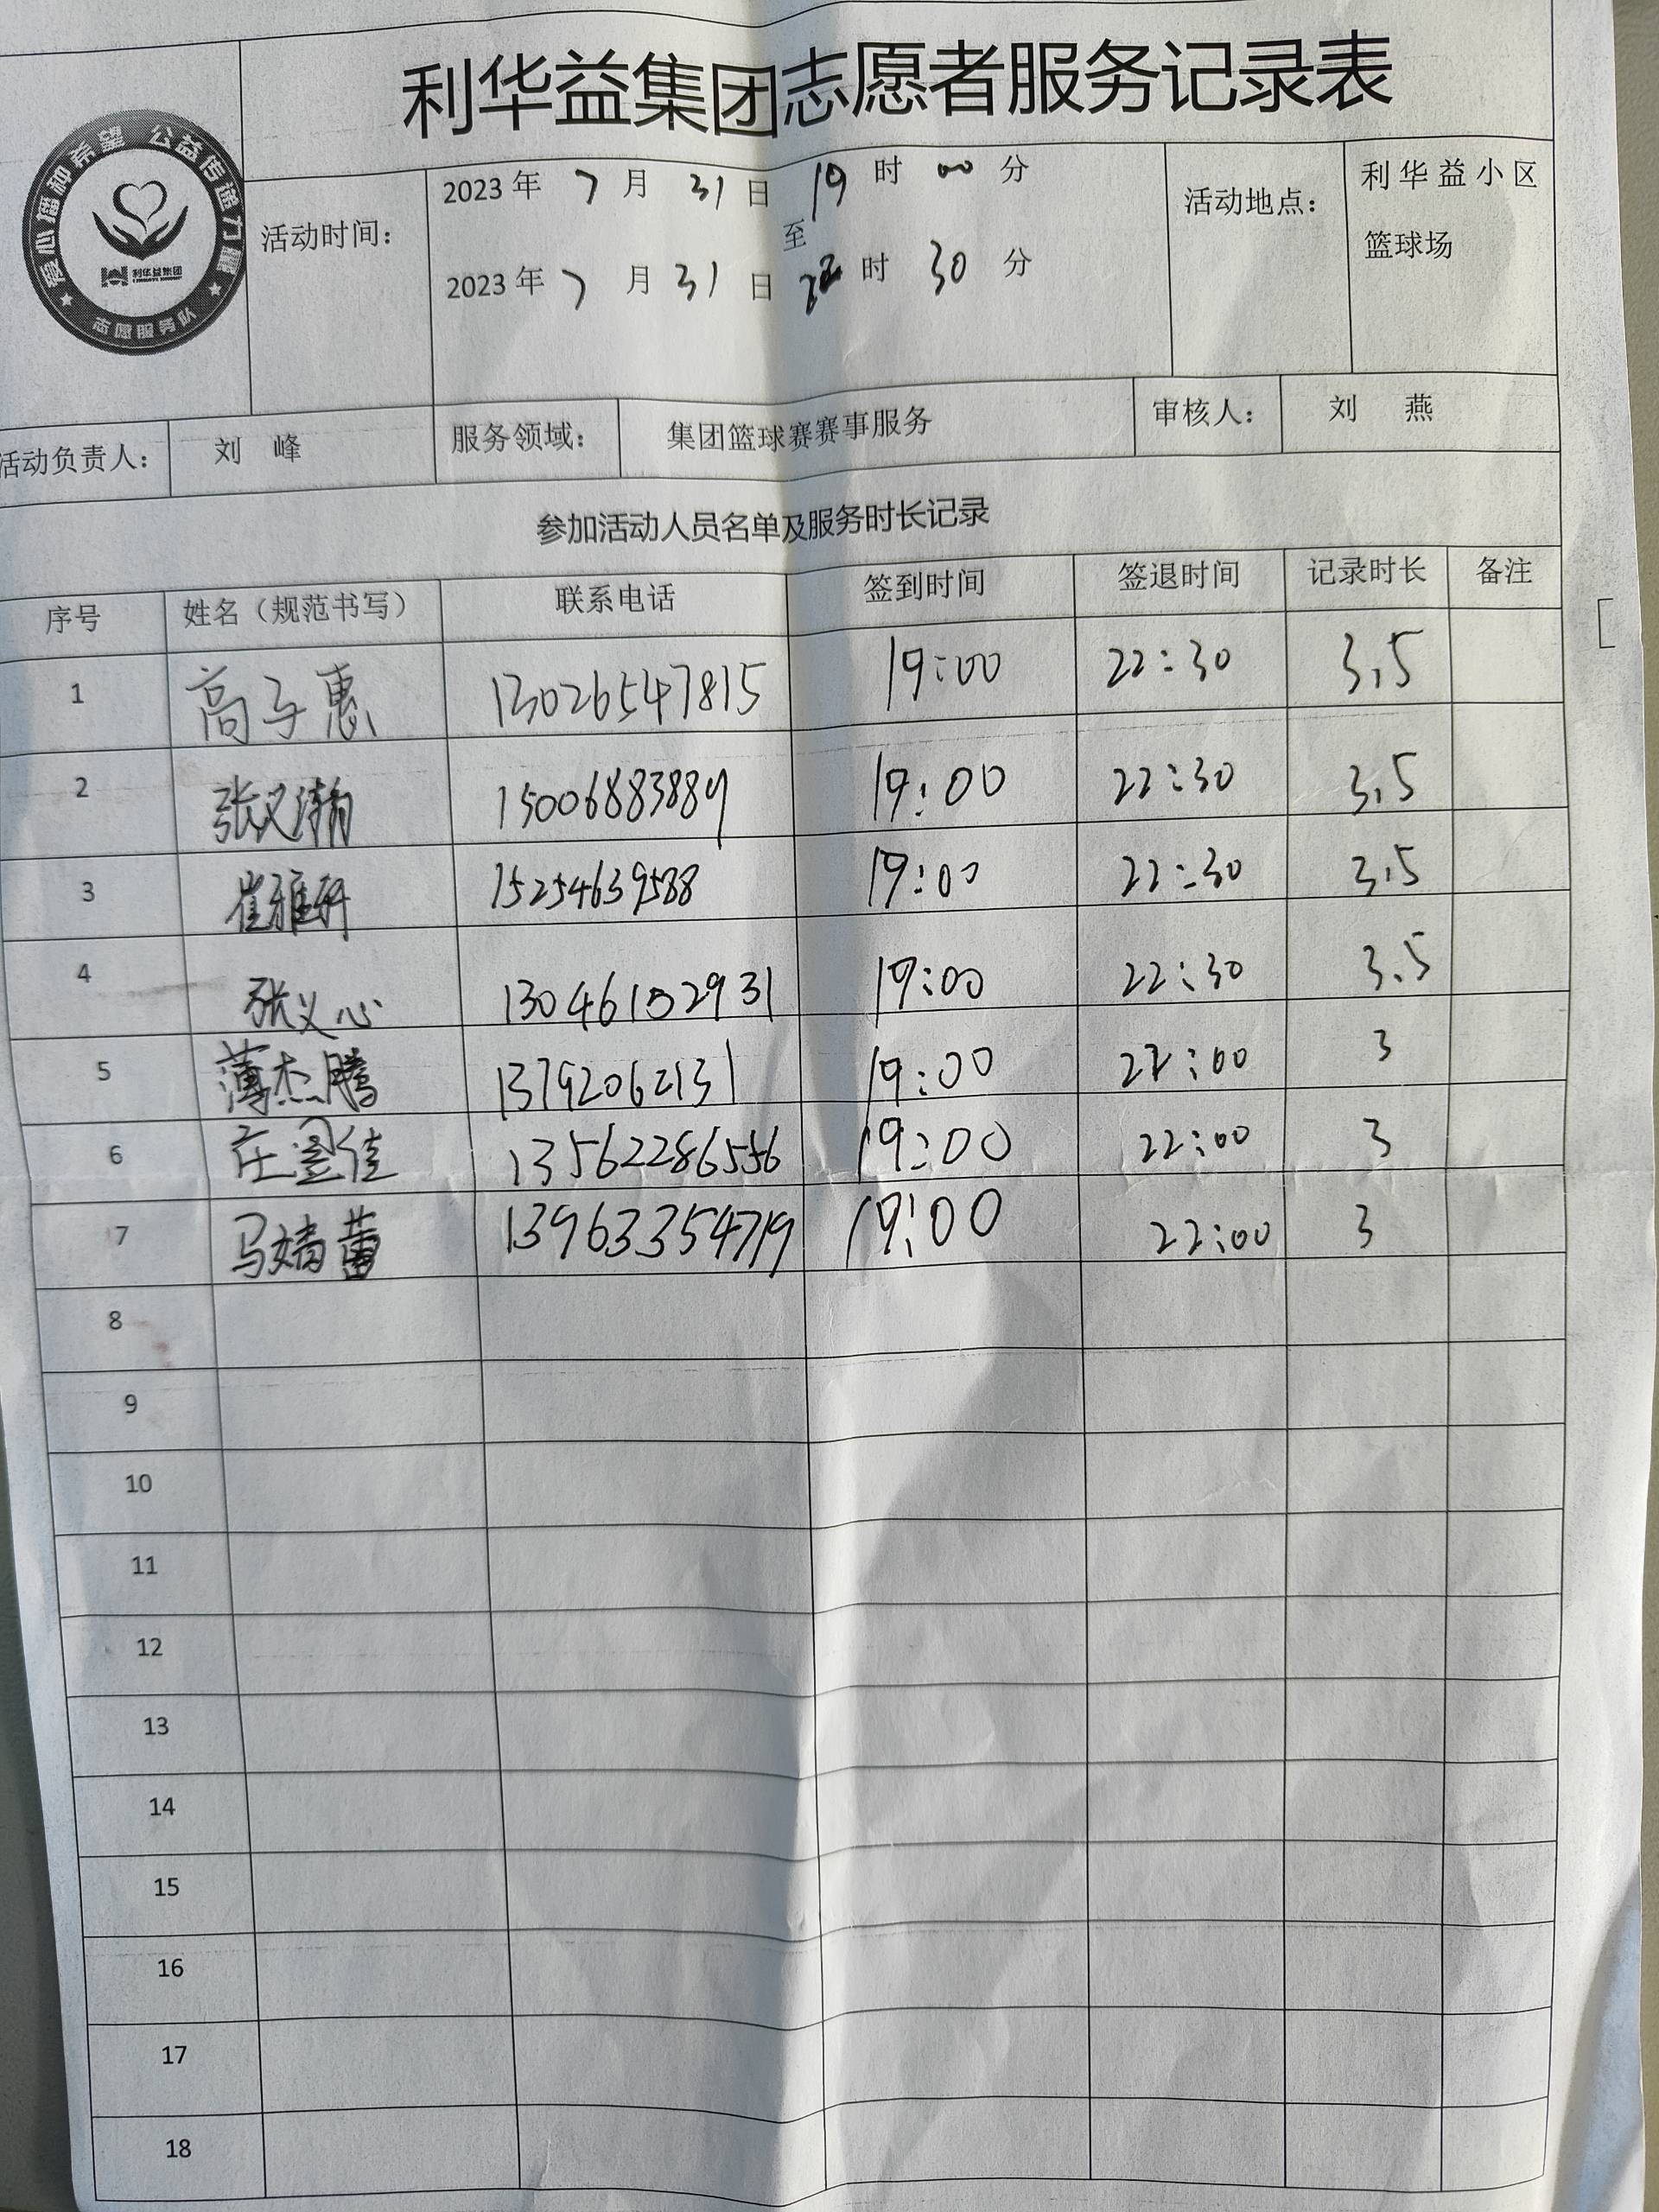 利华益集团志愿者服务记录表
爱心播种希望 公益传递力量
利华益集团
志愿服务队
活动时间：
2023 年 7 月 31 日 19 时 00 分
至
2023 年 7 月 31 日 22 时 30 分
活动地点：
利华益小区
篮球场
活动负责人： 刘 峰 服务领域： 集团篮球赛赛事服务 审核人： 刘 燕
参加活动人员名单及服务时长记录
序号 姓名（规范书写） 联系电话 签到时间 签退时间 记录时长 备注
1 高子惠 13026547815 19:00 22:30 3.5
2 张义瀚 15006883889 19:00 22:30 3.5
3 崔雅轩 15254639588 19:00 22:30 3.5
4 张义心 13046102931 19:00 22:30 3.5
5 薄杰腾 13792062131 19:00 22:00 3
6 庄 佳 13562286556 19:00 22:00 3
7 马婧蕾 13963354719 19:00 22:00 3
8
9
10
11
12
13
14
15
16
17
18